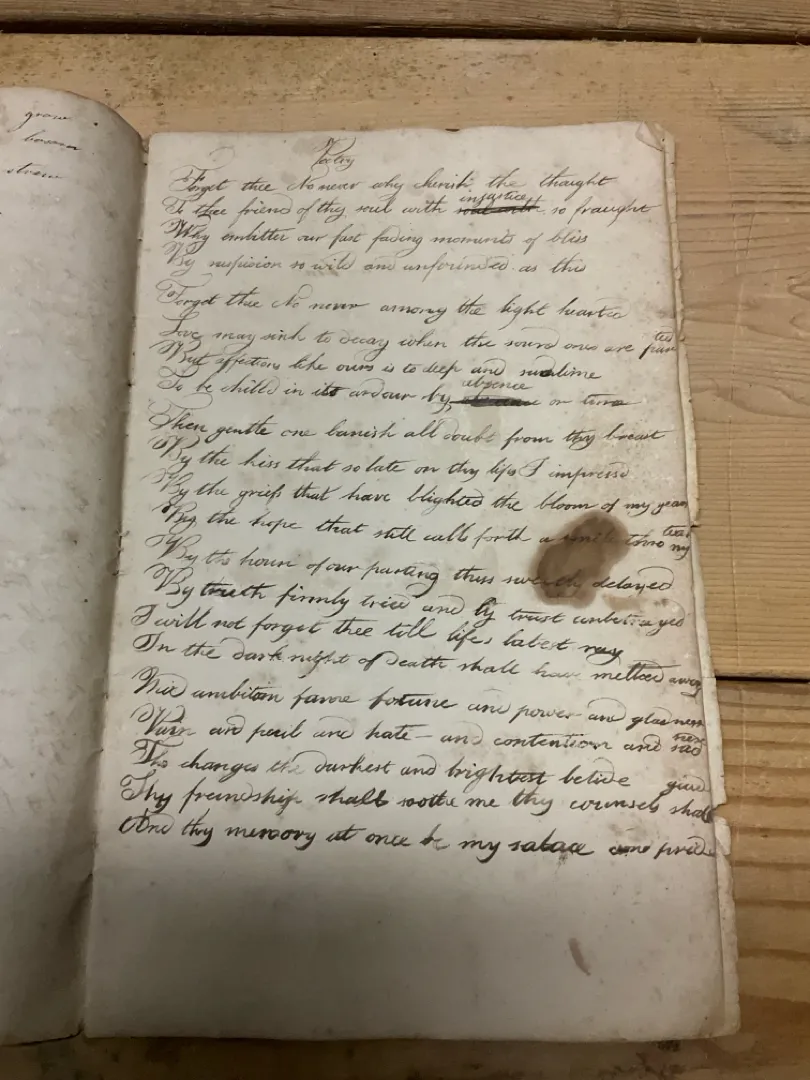 grow
bosom
Poetry
Forget thee No never why cherish the thought
To thee friend of thy soul with injustice so fraught
Why imbitter our fast fading moments of bliss
By suspicion so wild and unfounded as this
Forget thee No never among the light hearted
Love may sink to decay when the sourd ones are parted
But affections like ours is to deep and sublime
To be chilld in its ardour by absence or time
Then gentle one banish all doubt from thy breast
By the kiss that so late on thy lips I impressd
By the griefs that have blighted the bloom of my years
By the hope that still calls forth a smile thro my tears
By the hour of our parting thus delayed
By truth firmly tried and by trust unbetrayed
I will not forget thee till lifes latest ray
In the dark night of death shall have melted away
Bid ambition fame fortune and power and gladness
Pain and peril and hate - and contention and sadness
The changes the darkest and brightest betide
Thy freindship shall soothe me thy counsels shall guid
And thy memory at once be my salace and pride